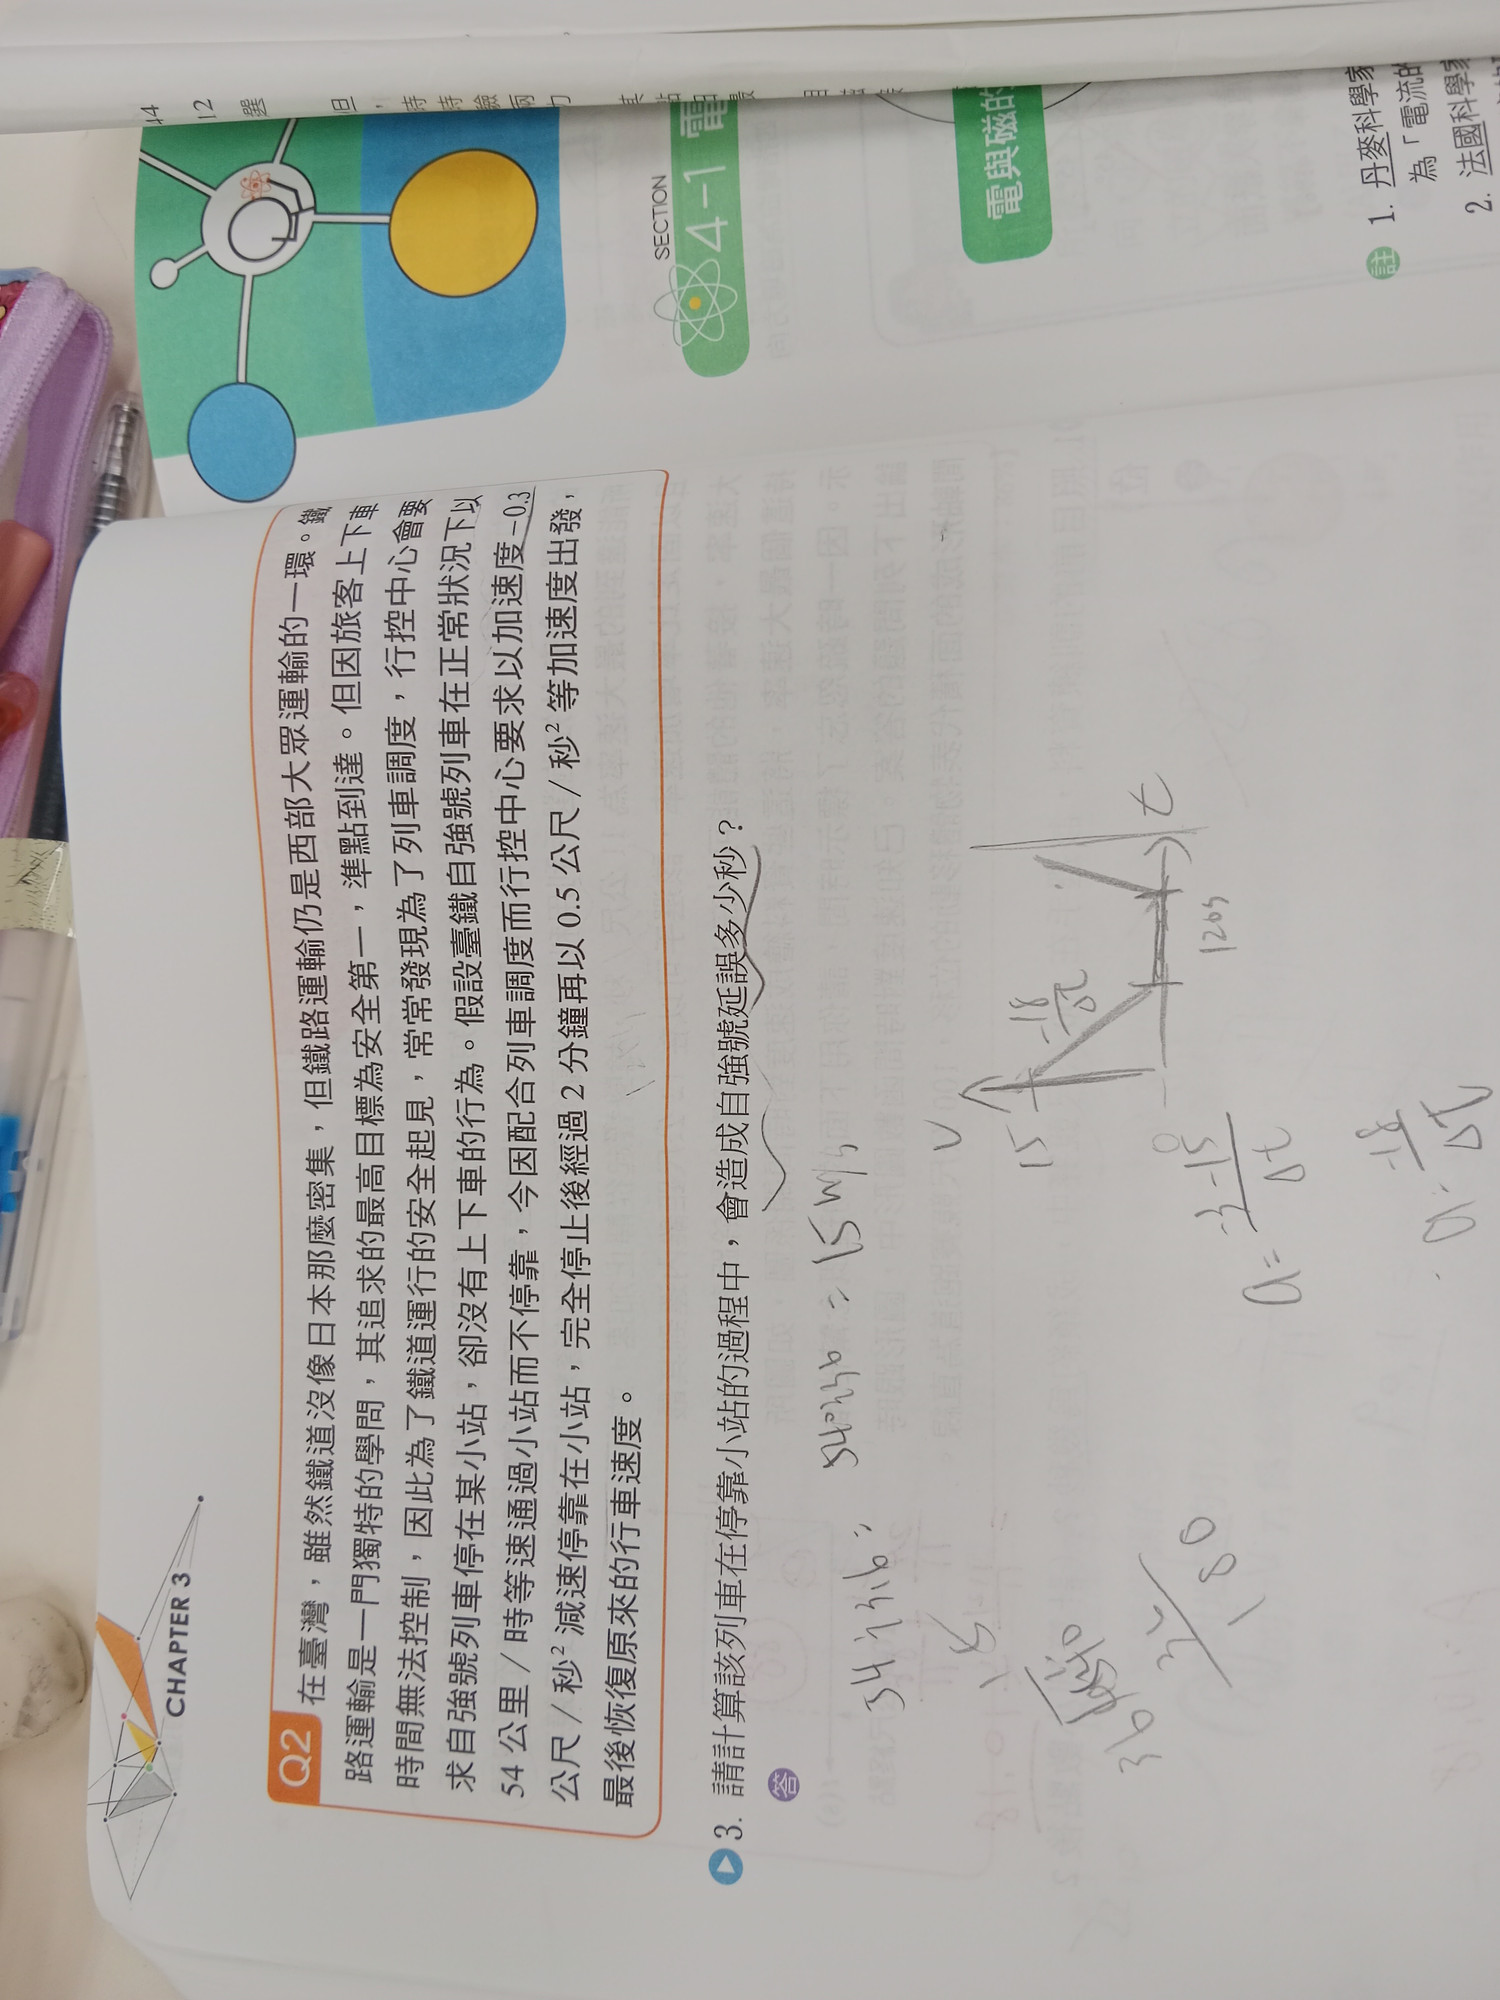 CHAPTER 3
Q2
在臺灣，雖然鐵道沒像日本那麼密集，但鐵路運輸仍是西部大眾運輸的一環。鐵
路運輸是一門獨特的學問，其追求的最高目標為安全第一，準點到達。但因旅客上下車
時間無法控制，因此為了鐵道運行的安全起見，常常發現為了列車調度，行控中心會要
求自強號列車停在某小站，卻沒有上下車的行為。假設臺鐵自強號列車在正常狀況下以
54 公里 / 時等速通過小站而不停靠，今因配合列車調度而行控中心要求以加速度−0.3
公尺 / 秒² 減速停靠在小站，完全停止後經過 2 分鐘再以 0.5 公尺 / 秒² 等加速度出發，
最後恢復原來的行車速度。
3. 請計算該列車在停靠小站的過程中，會造成自強號延誤多少秒？
答
15 m/s
V
15
120s
t
36
180
SECTION
4-1 電
電與磁的
註
1. 丹麥科學家
為「電流的
2. 法國科學家
44
12
選
但